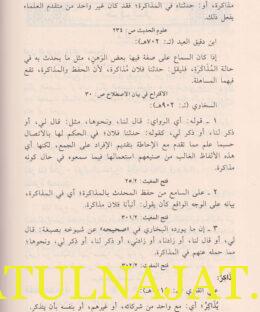 مذاكرة، أو: حدثناه في المذاكرة؛ فقد كان غير واحد من متقدم العلماء
يفعل ذلك.
علوم الحديث ص: ٢٣٤
ابن دقيق العيد (ت: ٧٠٢هـ):
إذا كان السماع على صفة فيها بعض الوَهَن، مثل ما يحدث به في
حالة المُذاكَرَة، فليقل: حدثنا فلان مذاكرة، لأن الحفظ والمذاكرة، تقع
فيهما المساهلة.
الاقتراح في بيان الاصطلاح ص: ٣٠
السخاوي (ت: ٩٠٢هـ):
١ ـ قوله: أي البرواي: قال لنا، ونحوها، مثل: قال لي، أو
ذكر لنا، أو ذكر لي، كقوله: حدثنا فلان؛ في الحكم لها بالاتصال
حسبما علم مما تقدم مع الإحاطة بتقديم الإفراد على الجمع، ولكنها أي
هذه الألفاظ الغالب من صنيعهم استعمالها فيما سمعوه في حال كونه
مذاكرة.
فتح المغيث: ٢٥/٢
٢ ـ على السامع من حفظ المحدث بالمذاكرة؛ أي في المذاكرة،
بيانه على الوجه الواقع كأن يقول: أنبأنا فلان مذاكرة.
فتح المغيث: ٣٠١/٢
٣ ـ إن ما يورده البخاري في "صحيحه" عن شيوخه بصيغة: قال
لي، أو قال لنا، أو زادنا، أو زادني، أو ذكر لنا، أو ذكر لي، ونحوها؛
مما حمله عنهم في المذاكرة.
فتح المغيث: ٣٠٢/٢
ATULNAJAT.
يُذاكِرُ: أي: مع واحد من شركائه، أو غيرهم، أو بنفسه بأن يتذكر